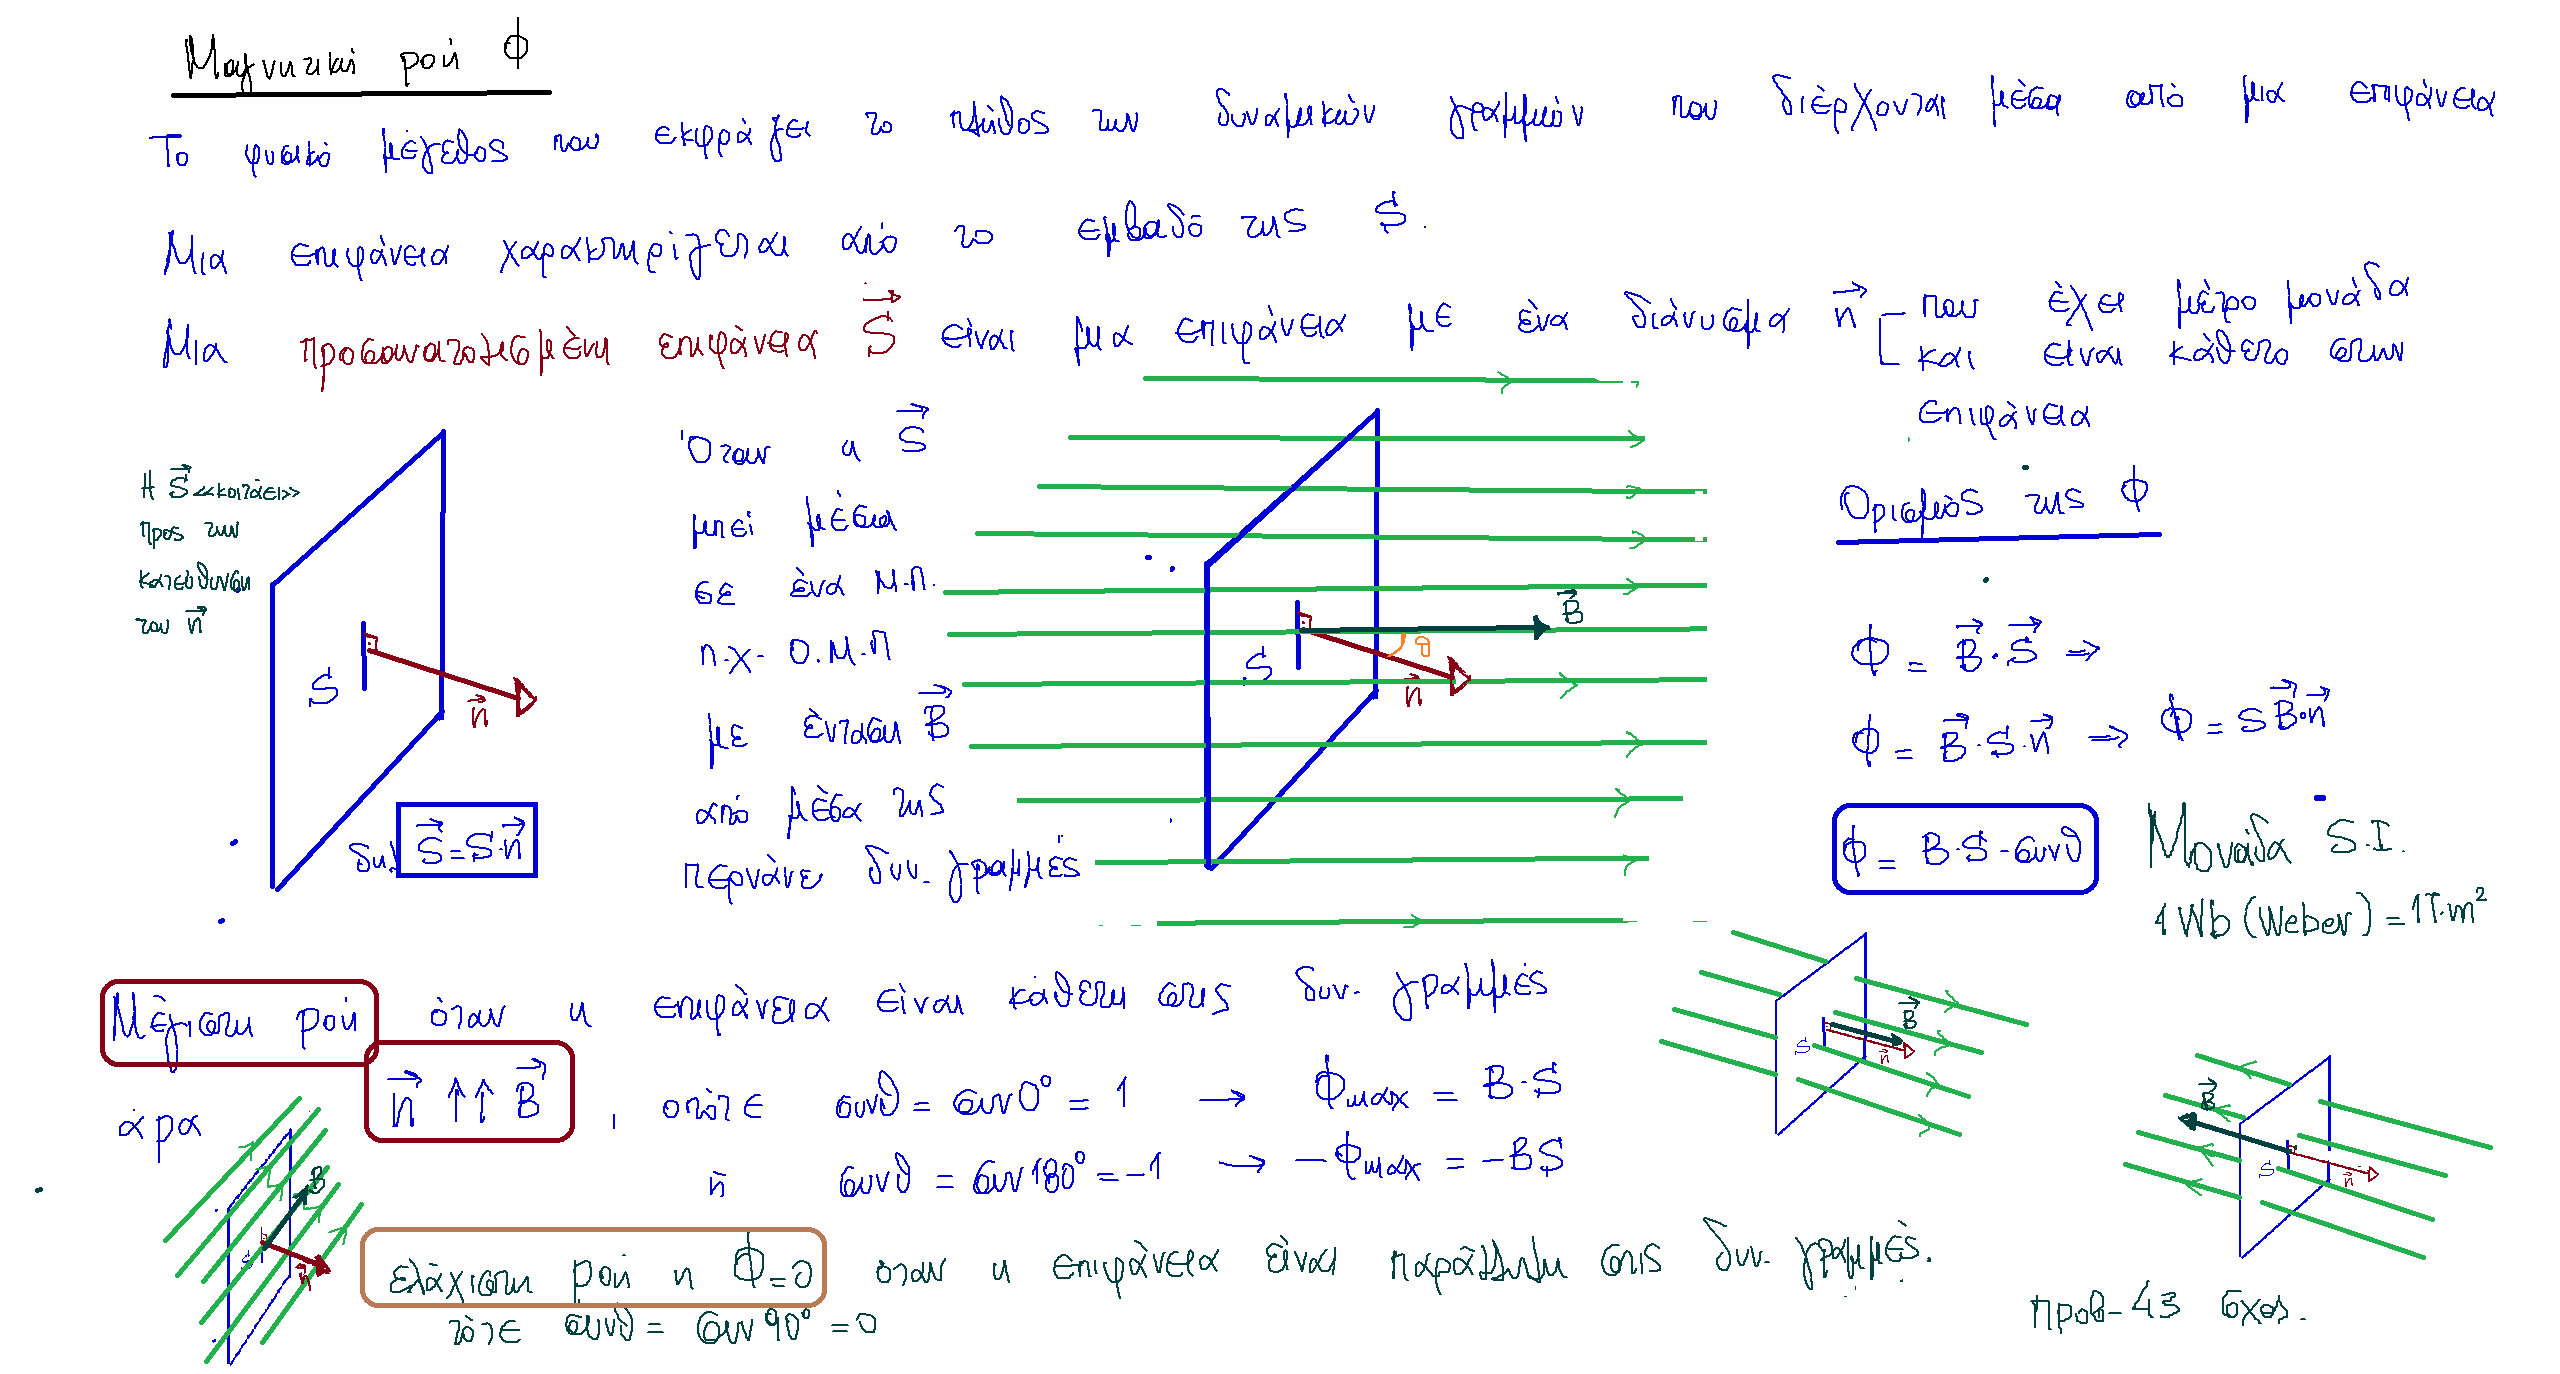 Μαγνητική ροή Φ
Το φυσικό μέγεθος που εκφράζει το πλήθος των δυναμικών γραμμών που διέρχονται μέσα από μια επιφάνεια
Μια επιφάνεια χαρακτηρίζεται από το εμβαδό της S.
Μια προσανατολισμένη επιφάνεια S⃗ είναι μια επιφάνεια με ένα διάνυσμα n⃗ που έχει μέτρο μονάδα
και είναι κάθετο στην
επιφάνεια
Η S⃗ «κοιτάει»
προς την
κατεύθυνση
του n⃗
S
n⃗
δηλ S⃗ = S·n⃗
Όταν η S⃗
μπει μέσα
σε ένα Μ.Π.
π.χ. Ο.Μ.Π
με ένταση B⃗
από μέσα της
περνάνε δυν. γραμμές
B⃗
θ
S
n⃗
Ορισμός της Φ
Φ = B⃗·S⃗ ⇒
Φ = B⃗·S·n⃗ ⇒ Φ = S B⃗·n⃗
Φ = B·S·συνθ
Μονάδα S.I.
1 Wb (Weber) = 1T·m²
Μέγιστη ροή όταν η επιφάνεια είναι κάθετη στις δυν. γραμμές
άρα n⃗ ↑↑ B⃗, οπότε συνθ = συν0° = 1 → Φmax = B·S
ή συνθ = συν180° = -1 → -Φmax = -BS
B⃗
S
n⃗
B⃗
S
n⃗
B
S
n⃗
ελάχιστη ροή η Φ=0 όταν η επιφάνεια είναι παράλληλη στις δυν. γραμμές.
τότε συνθ = συν90° = 0
προβ- 43 σχολ.